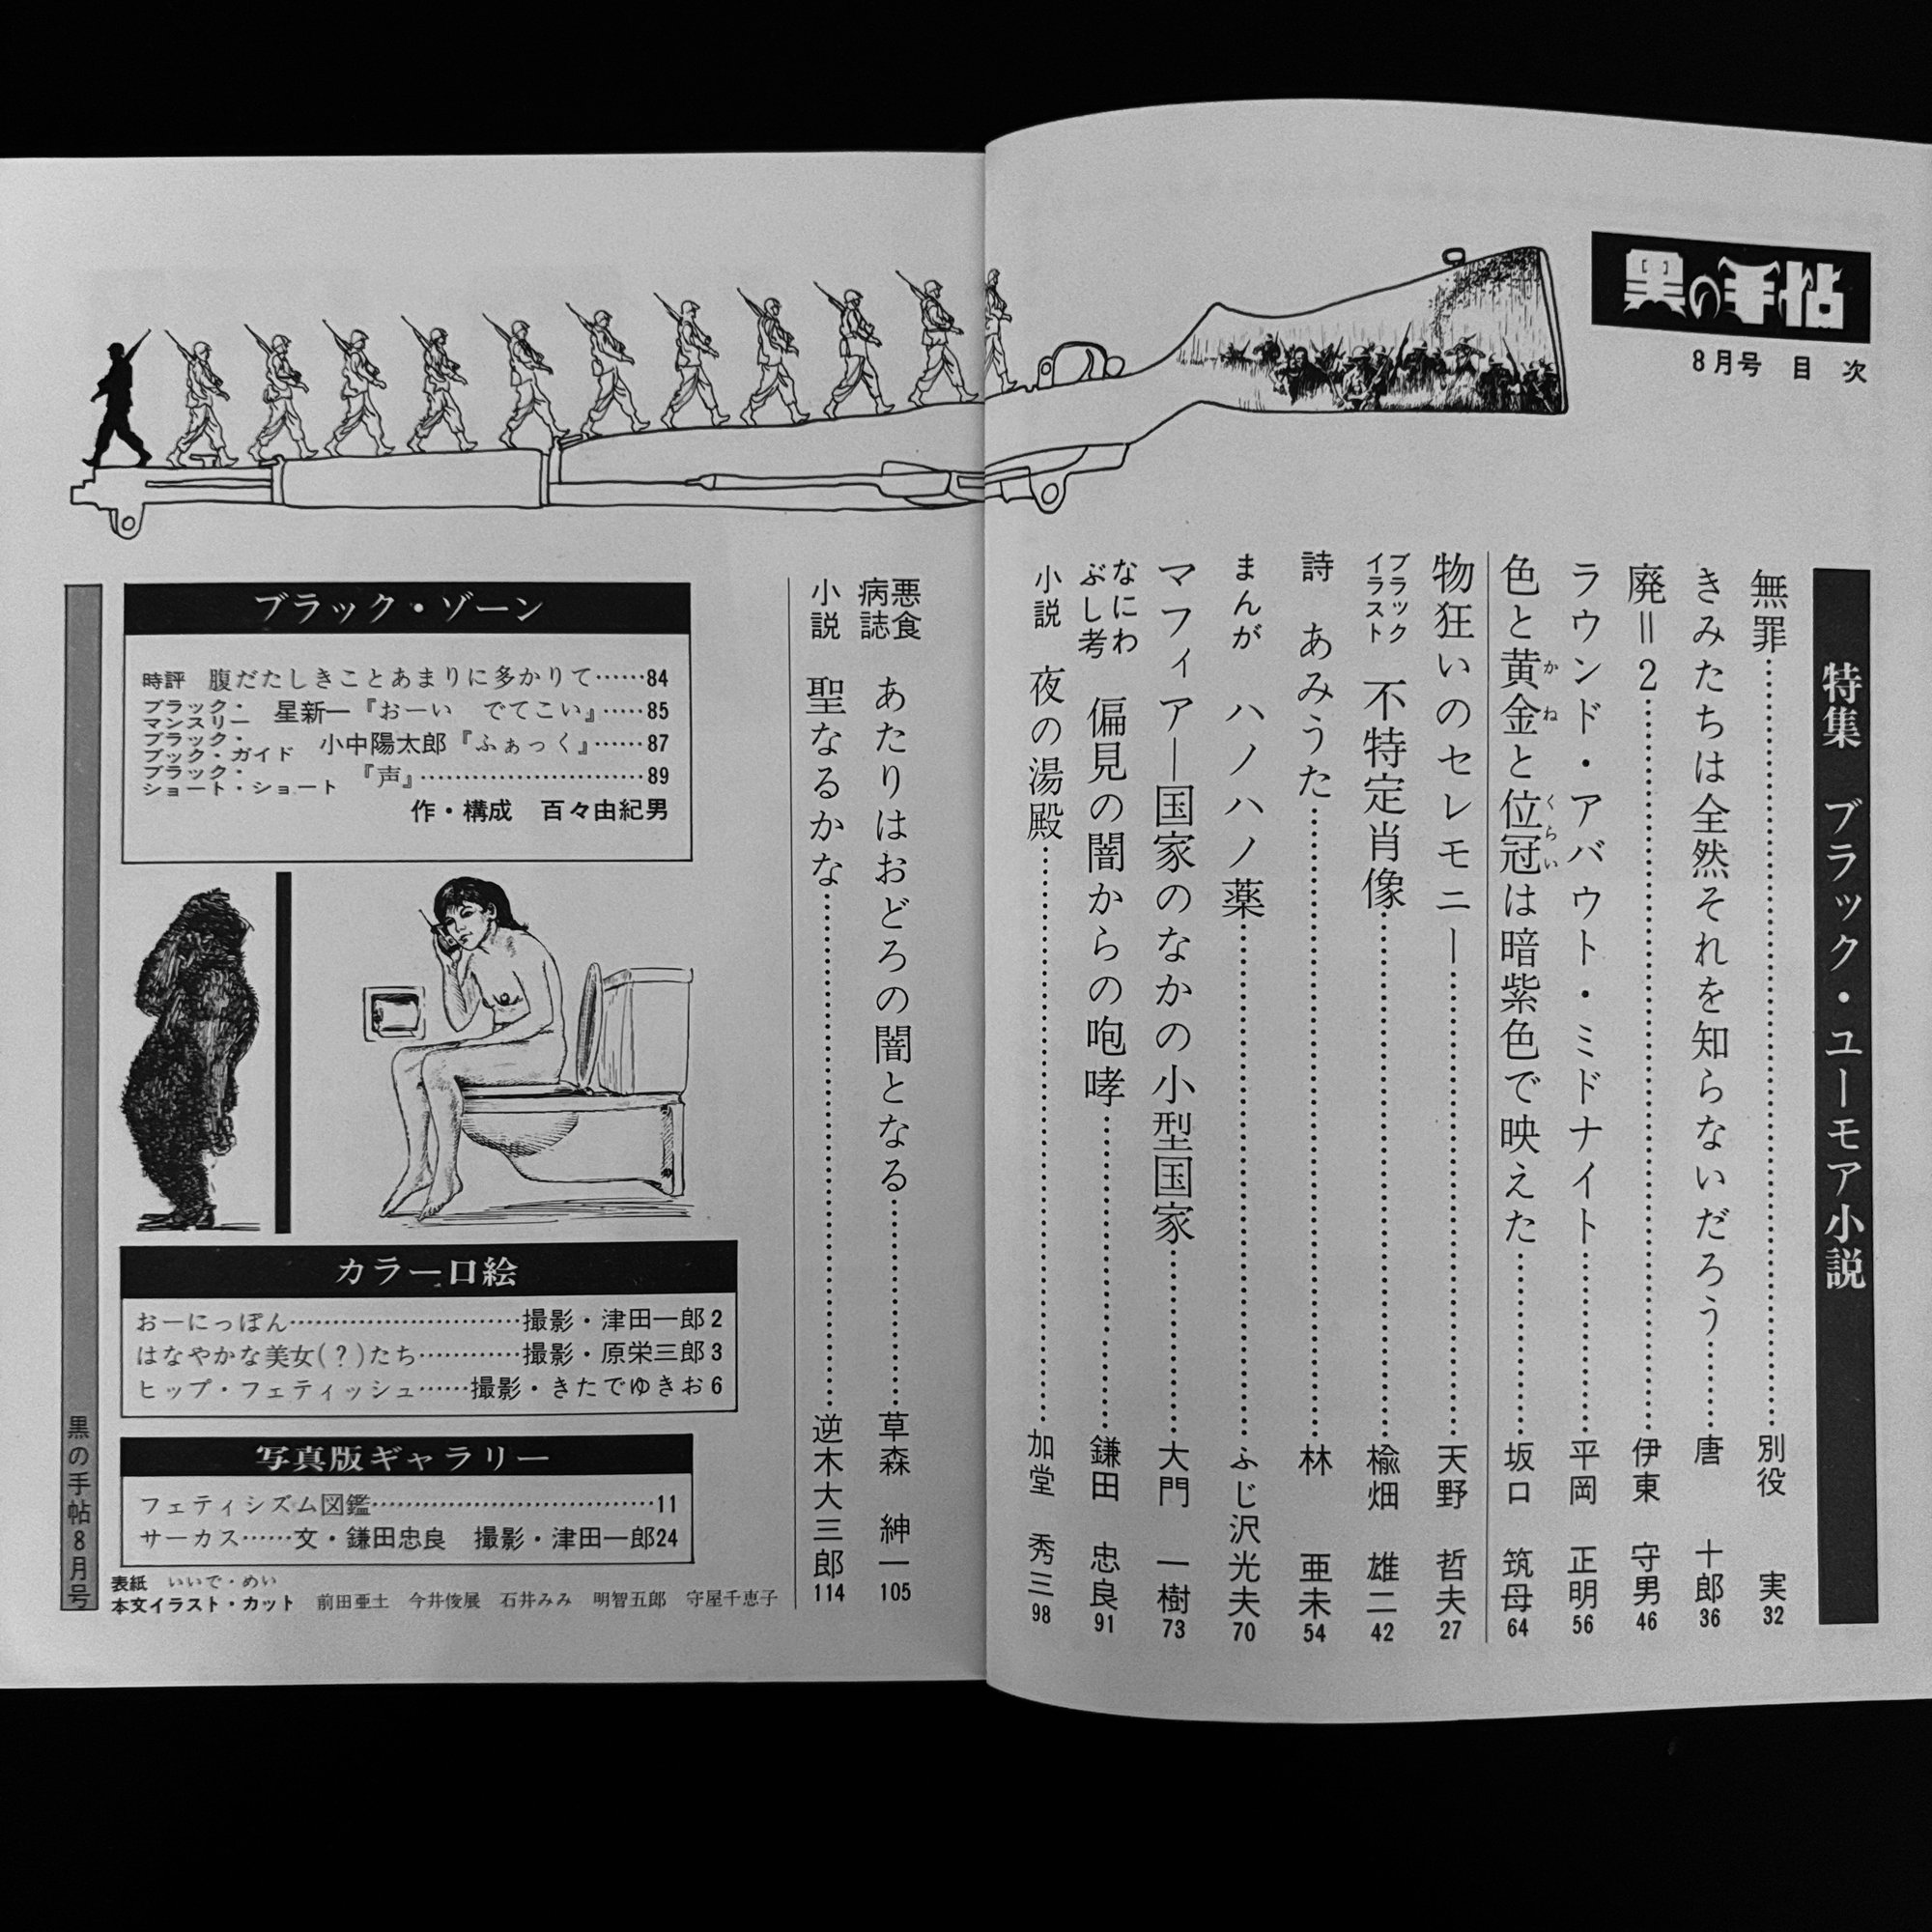 黒の手帖
8月号 目 次
特集 ブラック・ユーモア小説
無罪……別役 実 32
きみたちは全然それを知らないだろう……唐 十郎 36
廃=2……伊東 守男 46
ラウンド・アバウト・ミドナイト……平岡 正明 56
色と黄金と位冠は暗紫色で映えた……坂口 筑母 64
かね
くらい
物狂いのセレモニー……天野 哲夫 27
ブラック
イラスト
不特定肖像……楡畑 雄二 42
詩 あみうた……林 亜未 54
まんが ハノハノ薬……ふじ沢光夫 70
マフィア―国家のなかの小型国家……大門 一樹 73
なにわ
ぶし考
偏見の闇からの咆哮……鎌田 忠良 91
小説 夜の湯殿……加堂 秀三 98
悪食
病誌
あたりはおどろの闇となる……草森 紳一 105
小説 聖なるかな……逆木大三郎 114
ブラック・ゾーン
時評 腹だたしきことあまりに多かりて……84
ブラック・
マンスリー
星新一『おーい でてこい』……85
ブラック・
ブック・ガイド
小中陽太郎『ふぁっく』……87
ブラック・
ショート・ショート
『声』……89
作・構成 百々由紀男
カラー口絵
おーにっぽん……撮影・津田一郎 2
はなやかな美女(?)たち……撮影・原栄三郎 3
ヒップ・フェティッシュ……撮影・きたでゆきお 6
写真版ギャラリー
フェティシズム図鑑……11
サーカス……文・鎌田忠良 撮影・津田一郎 24
表紙 いいで・めい
本文イラスト・カット 前田亜土 今井俊展 石井みみ 明智五郎 守屋千恵子
黒の手帖8月号